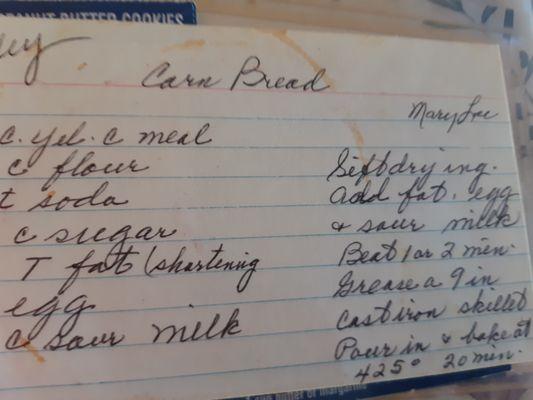 PEANUT BUTTER COOKIES
Corn Bread
Mary Lou
c. yel. c meal
c flour
t soda
c sugar
T fat (shortening
egg
c sour milk
Sift dry ing.
add fat, egg
& sour milk
Beat 1 or 2 min.
Grease a 9 in
cast iron skillet
Pour in & bake at
425° 20 min.